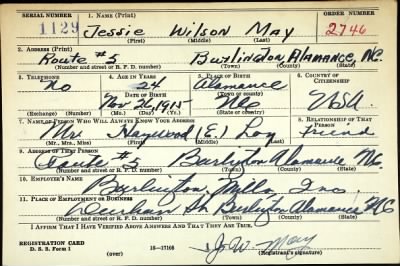 SERIAL NUMBER 1. NAME (Print) ORDER NUMBER
1129 Jessie Wilson May 2746
(First) (Middle) (Last)
2. ADDRESS (Print)
Route #5 Burlington Alamance, N.C.
(Number and street or R. F. D. number) (Town) (County) (State)
3. TELEPHONE 4. AGE IN YEARS 5. PLACE OF BIRTH 6. COUNTRY OF CITIZENSHIP
No 24 Alamance
DATE OF BIRTH (Town or county)
Nov 26, 1915 N.C. U.S.A.
(Exchange) (Number) (Mo.) (Day) (Yr.) (State or country)
7. NAME OF PERSON WHO WILL ALWAYS KNOW YOUR ADDRESS 8. RELATIONSHIP OF THAT PERSON
Mr. Haywood (E.) Loy friend
(Mr., Mrs., Miss) (First) (Middle) (Last)
9. ADDRESS OF THAT PERSON
Route #5 Burlington Alamance N.C.
(Number and street or R. F. D. number) (Town) (County) (State)
10. EMPLOYER'S NAME
Burlington Mills, Inc.
11. PLACE OF EMPLOYMENT OR BUSINESS
Durham St Burlington Alamance N.C
(Number and street or R. F. D. number) (Town) (County) (State)
I AFFIRM THAT I HAVE VERIFIED ABOVE ANSWERS AND THAT THEY ARE TRUE.
REGISTRATION CARD
D. S. S. Form 1 16-17105 J. W. May
(over) (Registrant's signature)